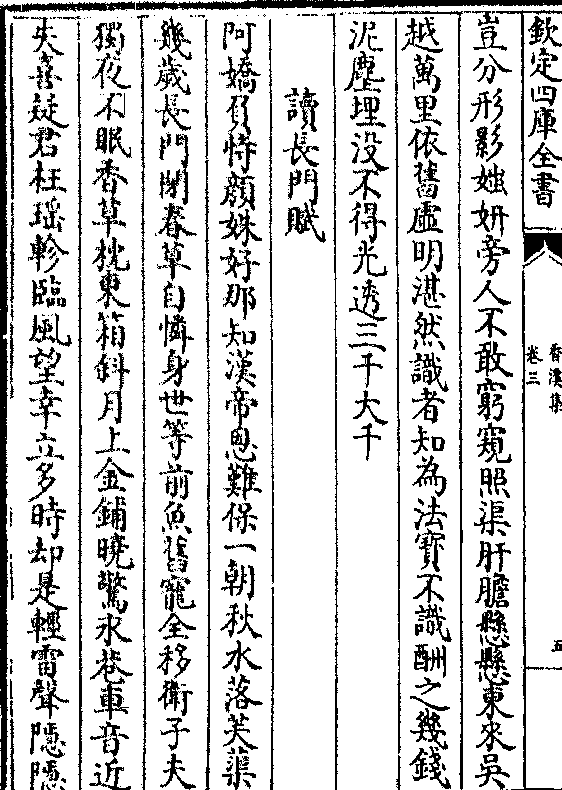 欽定四庫全書
香溪集
卷三
五
豈分形影媸妍旁人不敢窮窺照渠肝膽懸懸東來吳
越萬里依舊虛明湛然識者知為法寶不識酬之幾錢
泥塵埋没不得光透三千大千
讀長門賦
阿嬌負恃顔姝好那知漢帝恩難保一朝秋水落芙蕖
幾歲長門閉春草自憐身世等前魚舊寵全移衛子夫
獨夜不眠香草枕東箱斜月上金鋪曉驚永巷車音近
失喜疑君枉瑶軫臨風望幸立多時却是輕雷聲隱隱